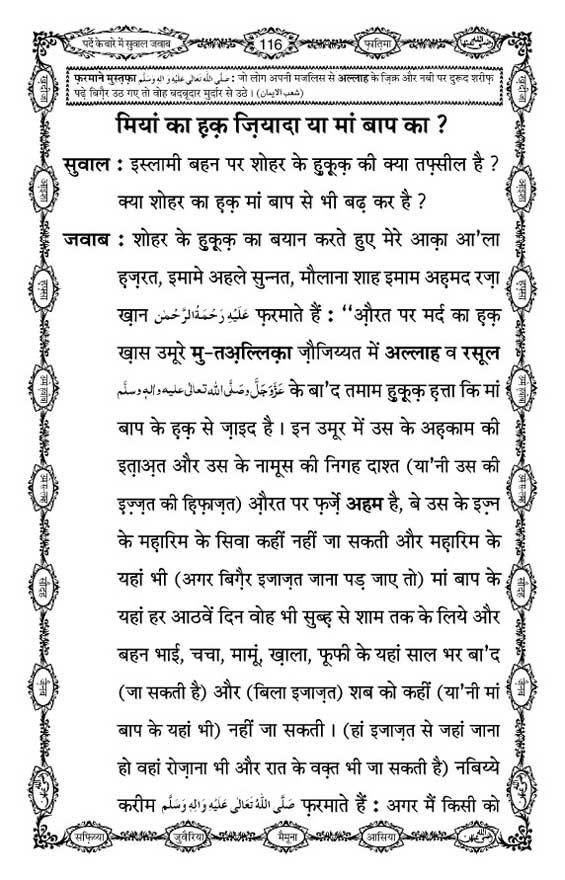 पर्दे के बारे में सुवाल जवाब 116 फ़ातिमा
फ़रमाने मुस्तफ़ा صَلَّى اللهُ تَعَالٰى عَلَيْهِ وَاٰلِهٖ وَسَلَّم : जो लोग अपनी मजलिस से अल्लाह के ज़िक्र और नबी पर दुरूद शरीफ़
पढ़े बिग़ैर उठ गए तो वोह बदबूदार मुर्दार से उठे । (شعب الايمان)
मियां का ह़क़ ज़ियादा या मां बाप का ?
सुवाल : इस्लामी बहन पर शोहर के ह़ुक़ूक़ की क्या तफ़्सील है ?
क्या शोहर का ह़क़ मां बाप से भी बढ़ कर है ?
जवाब : शोहर के ह़ुक़ूक़ का बयान करते हुए मेरे आक़ा आ'ला
ह़ज़रत, इमामे अहले सुन्नत, मौलाना शाह इमाम अह़मद रज़ा
ख़ान عَلَيْهِ رَحْمَةُ الرَّحْمٰن फ़रमाते हैं : ‘‘औ़रत पर मर्द का ह़क़
ख़ास उमूरे मु-तअ़ल्लिक़ा ज़ौजिय्यत में अल्लाह व रसूल
عَزَّوَجَلَّ وصَلَّى الله تعالى عليه واله وسلَّم के बा'द तमाम ह़ुक़ूक़ ह़त्ता कि मां
बाप के ह़क़ से ज़ाइद है । इन उमूर में उस के अह़काम की
इत़ाअ़त और उस के नामूस की निगह दाश्त (या'नी उस की
इ़ज़्ज़त की ह़िफ़ाज़त) औ़रत पर फ़र्ज़े अहम है, बे उस के इज़्न
के मह़ारिम के सिवा कहीं नहीं जा सकती और मह़ारिम के
यहां भी (अगर बिग़ैर इजाज़त जाना पड़ जाए तो) मां बाप के
यहां हर आठवें दिन वोह भी सुब्ह़ से शाम तक के लिये और
बहन भाई, चचा, मामूं, ख़ाला, फूफी के यहां साल भर बा'द
(जा सकती है) और (बिला इजाज़त) शब को कहीं (या'नी मां
बाप के यहां भी) नहीं जा सकती । (हां इजाज़त से जहां जाना
हो वहां रोज़ाना भी और रात के वक़्त भी जा सकती है) नबिय्ये
करीम صَلَّى اللهُ تَعَالٰى عَلَيْهِ وَاٰلِهٖ وَسَلَّم फ़रमाते हैं : अगर मैं किसी को
सफ़िय्या जुवैरिया मैमूना आसिया